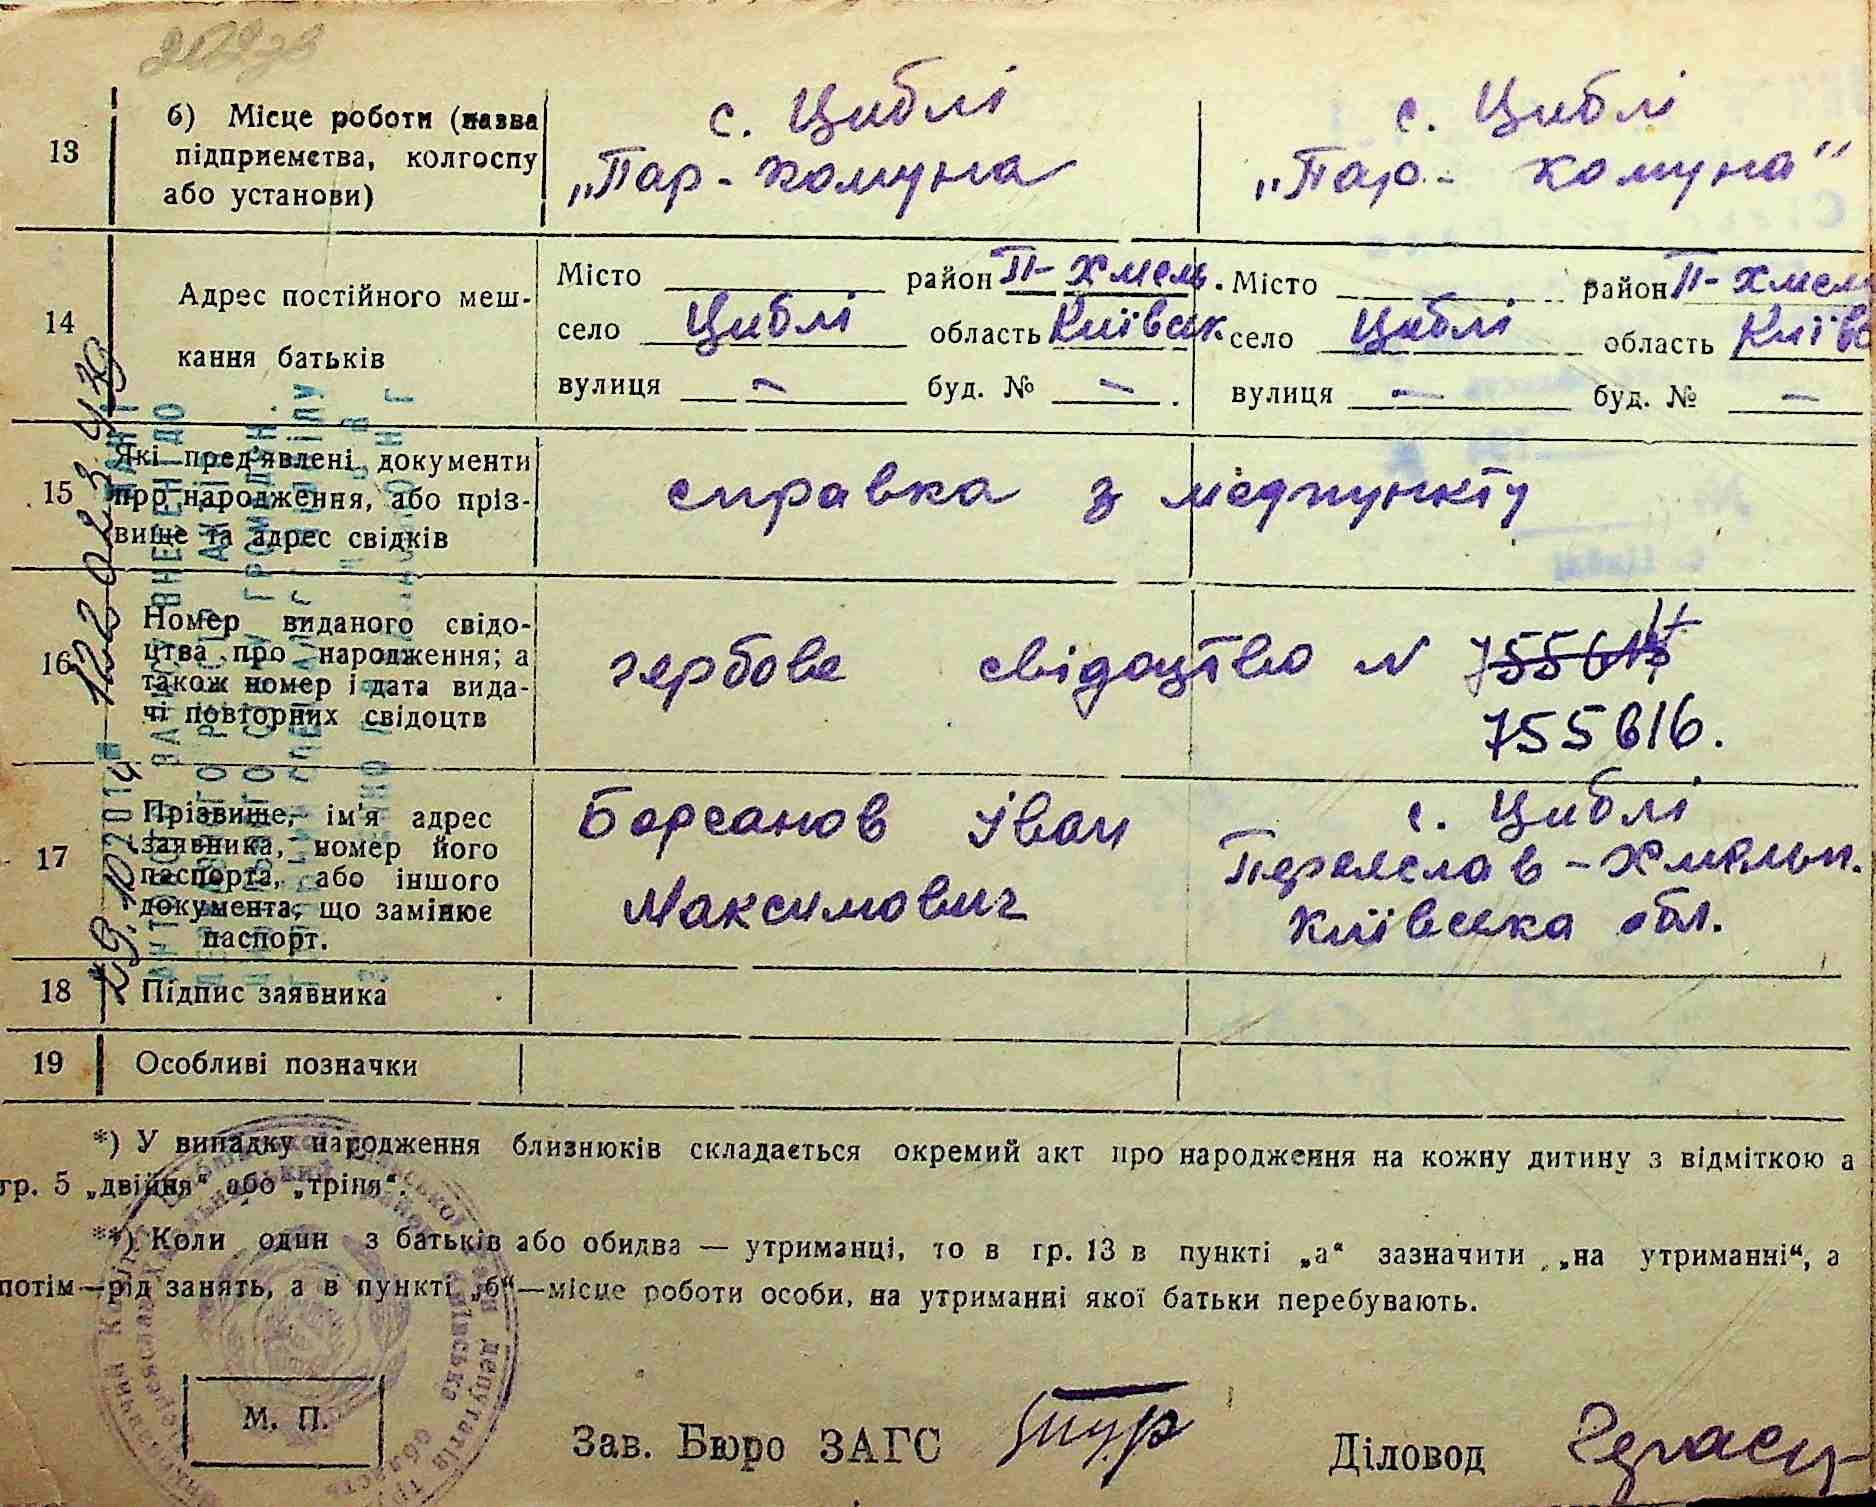 13
б) Місце роботи (назва
підприємства, колгоспу
або установи)
с. Циблі
„Пар-комуна
с. Циблі
„Пар-комуна“
14
Адрес постійного меш-
кання батьків
Місто район П-Хмель.
село Циблі область Київськ
вулиця — буд. № — .
Місто район П-Хмель
село Циблі область Київс
вулиця — буд. № —
15
Які пред'явлені документи
про народження, або пріз-
вище та адрес свідків
справка з медпункту
16
Номер виданого свідо-
цтва про народження; а
також номер і дата вида-
чі повторних свідоцтв
гербове свідоцтво N
755616.
17
Прізвище, ім'я адрес
заявника, номер його
паспорта, або іншого
документа, що замінює
паспорт.
Борсанов Іван
Максимович
с. Циблі
Переяслав-Хмельн.
Київська обл.
18
Підпис заявника
19
Особливі позначки
*) У випадку народження близнюків складається окремий акт про народження на кожну дитину з відміткою а
гр. 5 „двійня“ або „тріня“.
**) Коли один з батьків або обидва — утриманці, то в гр. 13 в пункті „а“ зазначити „на утриманні“, а
потім—рід занять, а в пункті „б“—місце роботи особи, на утриманні якої батьки перебувають.
М. П.
Зав. Бюро ЗАГС
Діловод